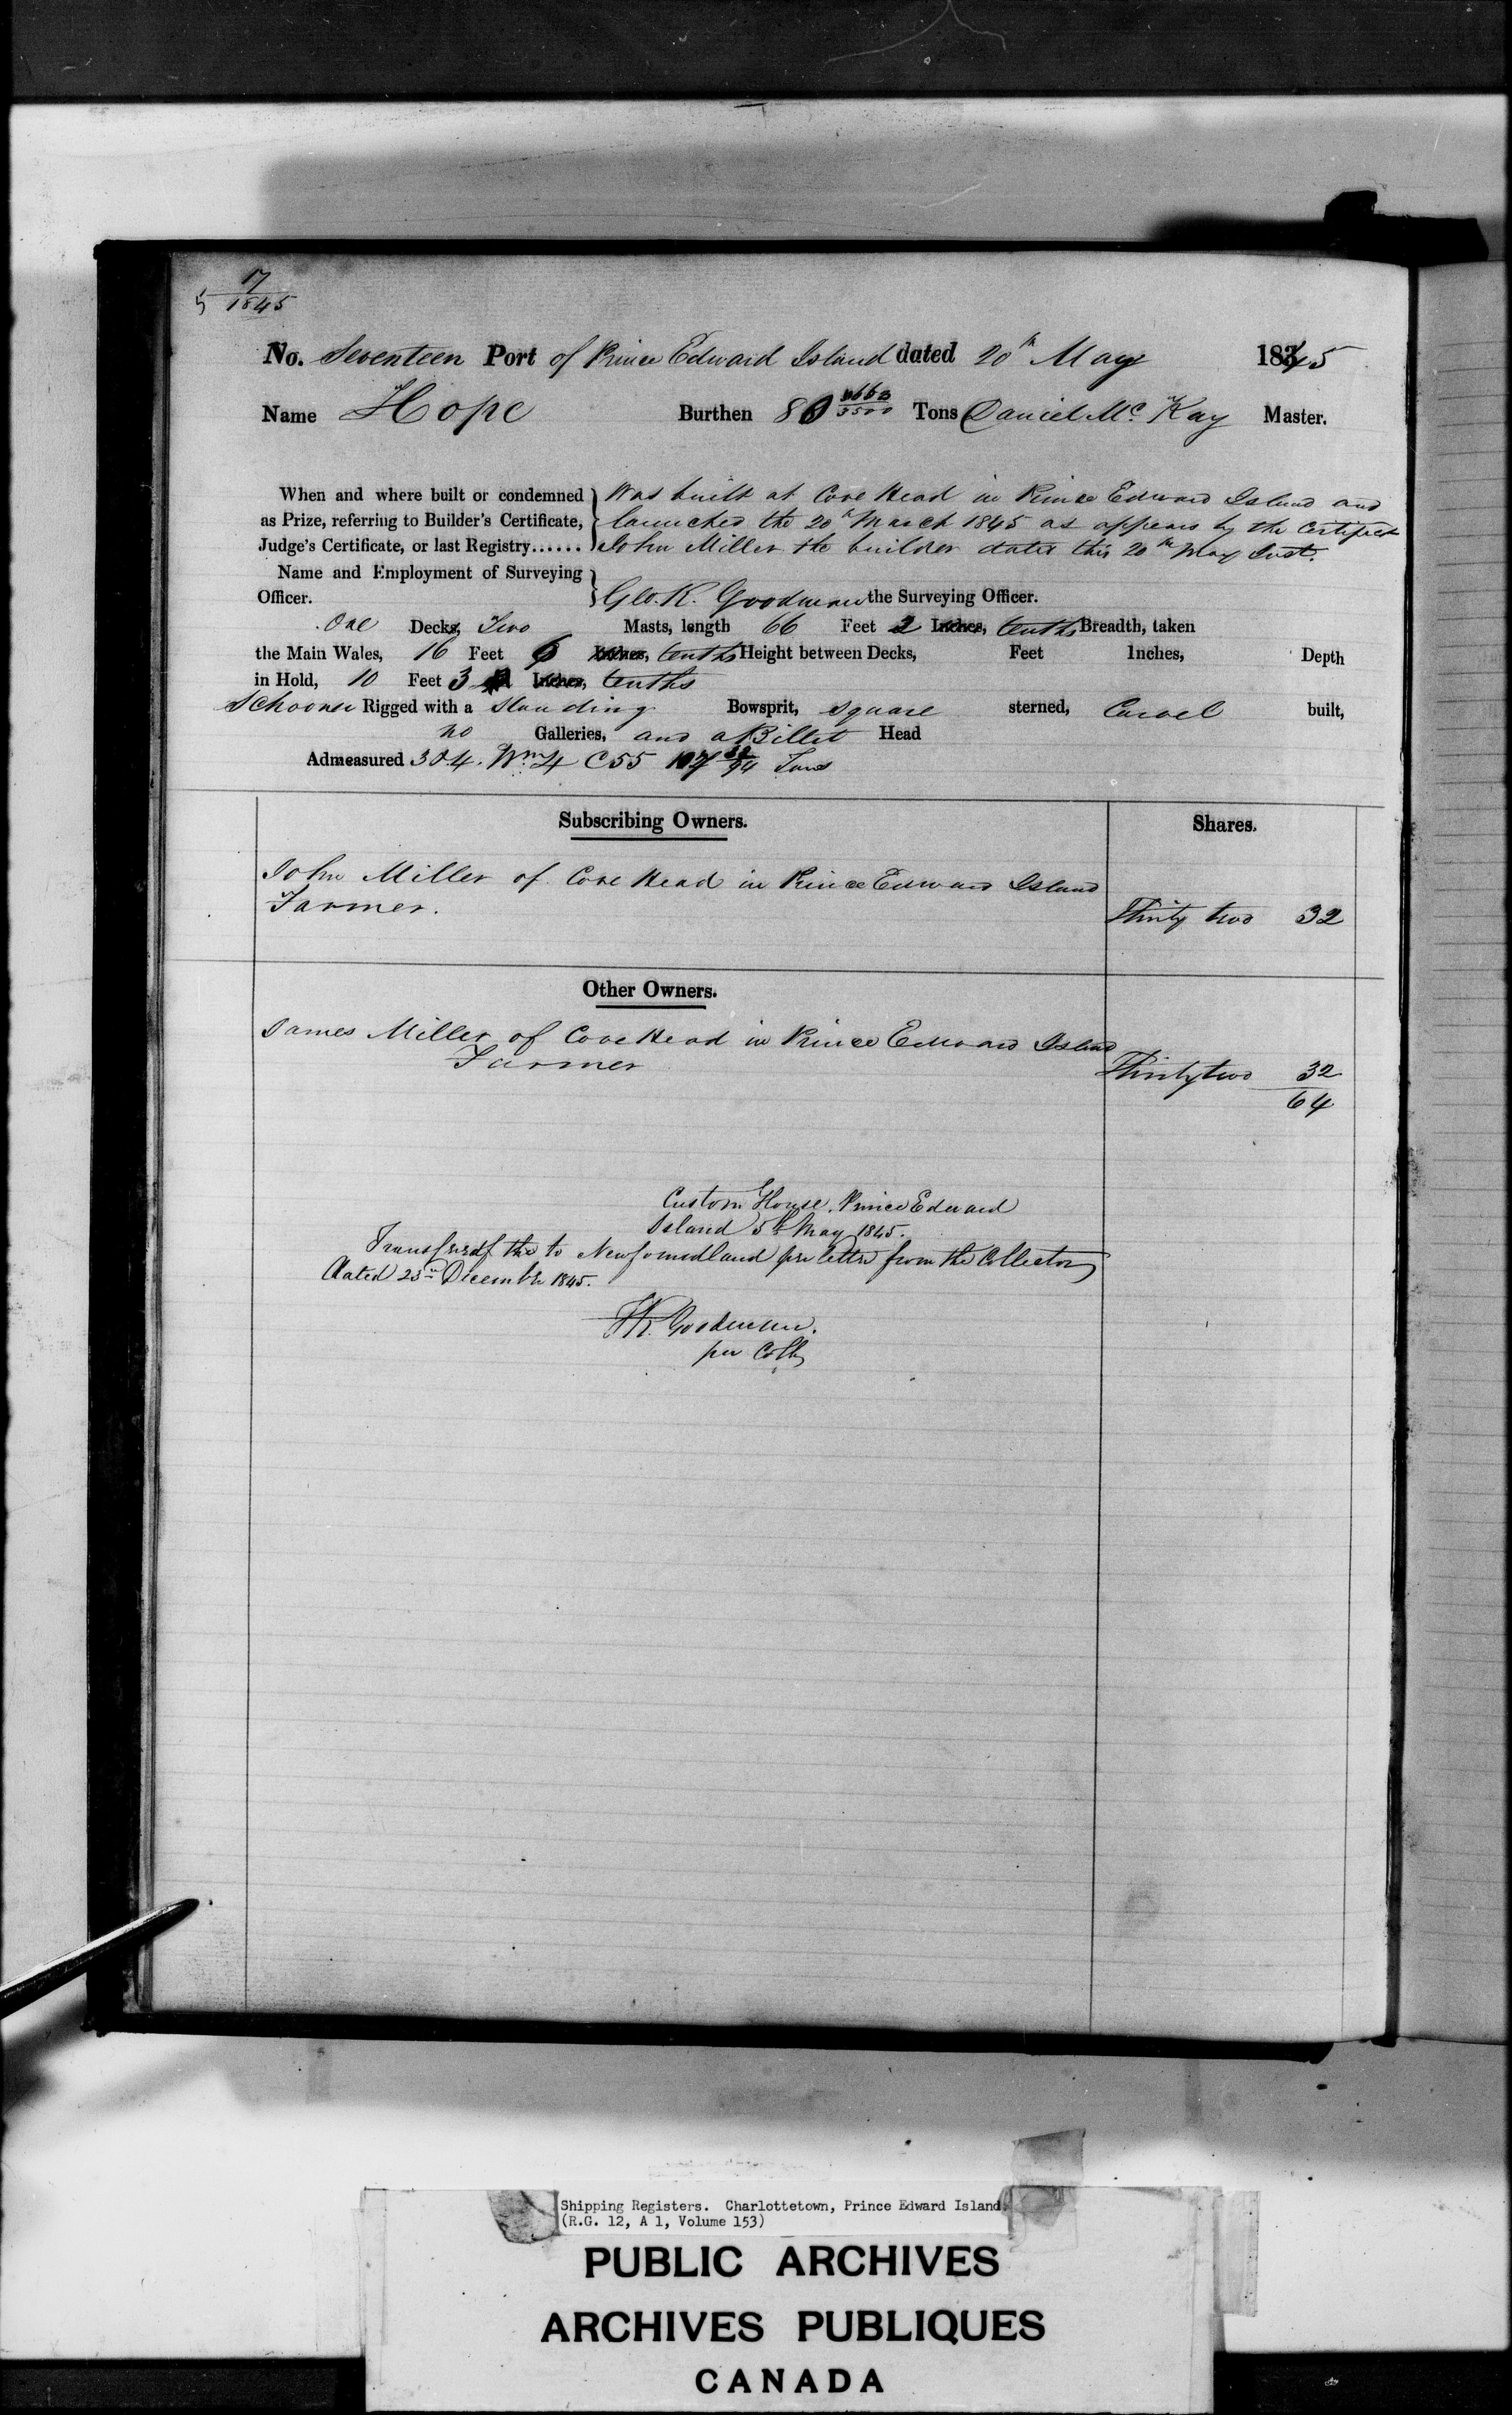 17
5 1845
No. Seventeen Port of Prince Edward Island dated 20th May 1845
Name Hope Burthen 80 /3500 Tons Daniel Mc Kay Master.
When and where built or condemned as Prize, referring to Builder's Certificate, Judge's Certificate, or last Registry......
Was built at Cove Head in Prince Edward Island and
launched the 20th March 1845 as appears by the Certificate
John Miller the builder dated this 20th May Inst.
Name and Employment of Surveying Officer. Geo. R. Goodman the Surveying Officer.
One Decks, Two Masts, length 66 Feet 2 Inches, tenths Breadth, taken
the Main Wales, 16 Feet 6 Inches, tenths Height between Decks, Feet Inches, Depth
in Hold, 10 Feet 3 Inches, tenths
Schooner Rigged with a Standing Bowsprit, square sterned, Carvel built,
no Galleries, and a Billet Head
Admeasured 3 & 4. Wm 4 C 55 /94 Tons
Subscribing Owners. Shares.
John Miller of Cove Head in Prince Edward Island
Farmer. Thirty two 32
Other Owners.
James Miller of Cove Head in Prince Edward Island
Farmer Thirty two 32
64
Custom House, Prince Edward
Island 5th May 1845.
to Newfoundland per letter from the Collector
dated 23rd December 1845.
Goodman.
per Collr
Shipping Registers. Charlottetown, Prince Edward Island.
(R.G. 12, A 1, Volume 153)
PUBLIC ARCHIVES
ARCHIVES PUBLIQUES
CANADA